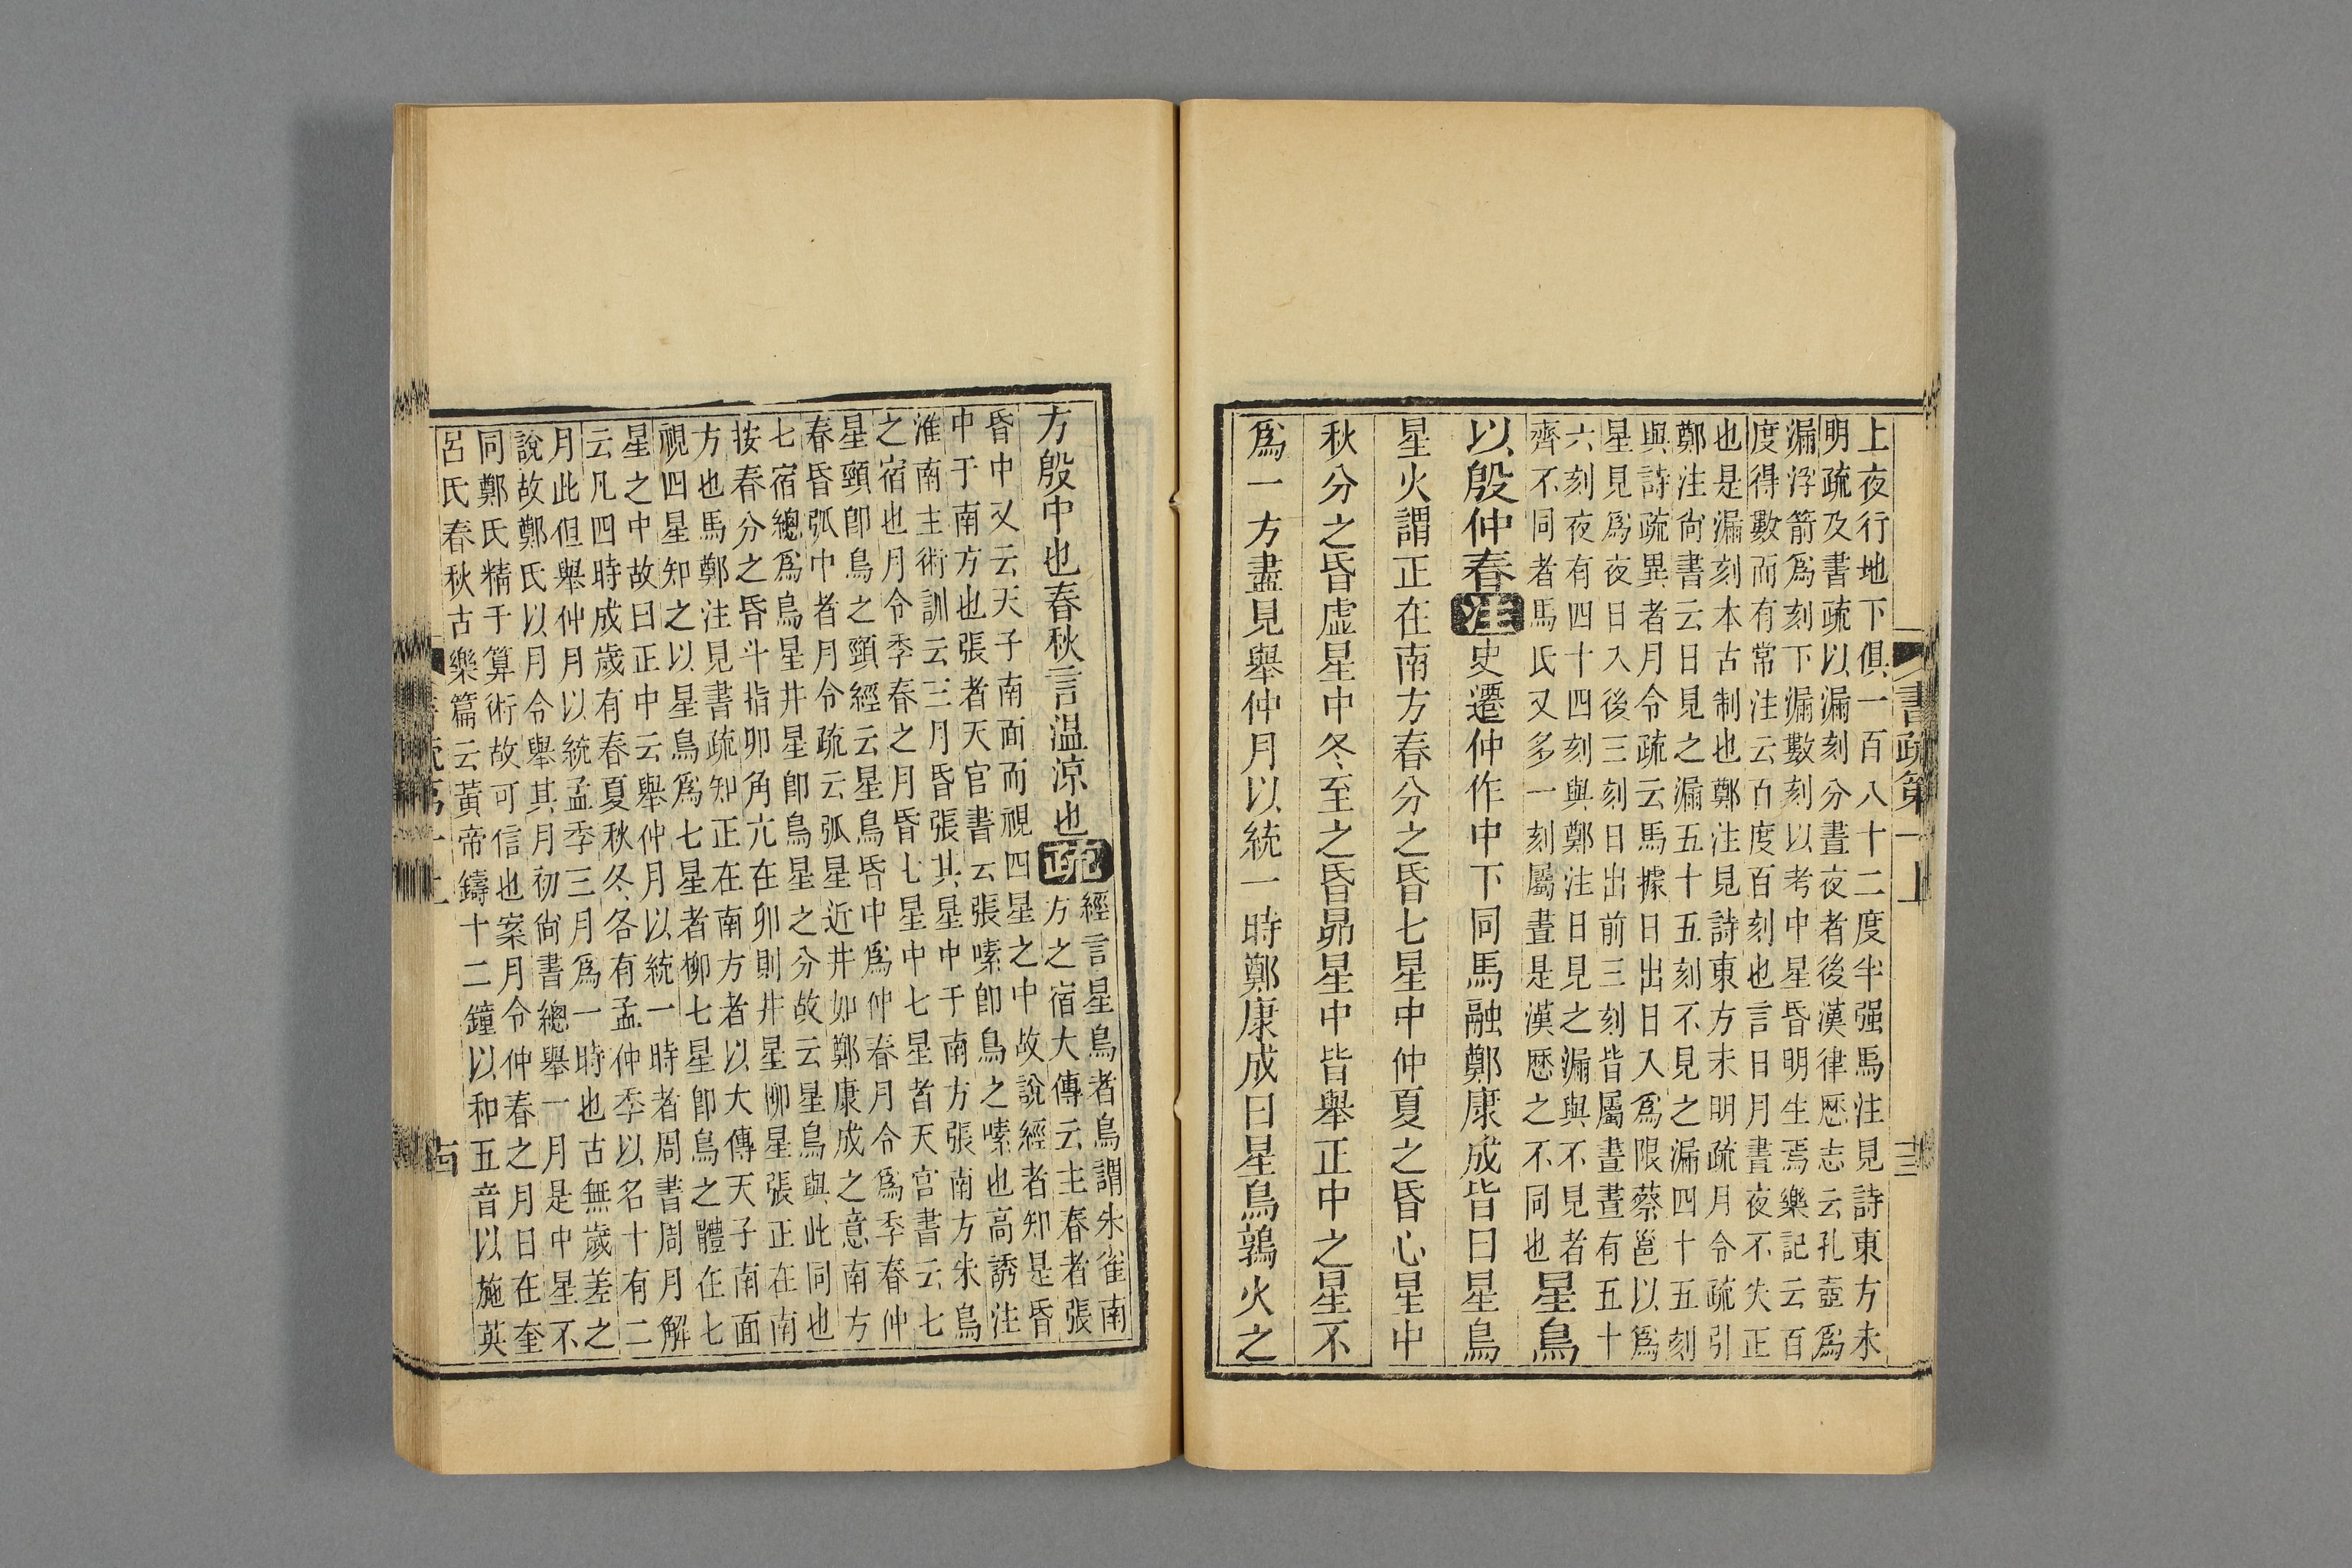 上夜行地下俱一百八十二度半强馬注見詩東方未
明疏及書疏以漏刻分晝夜者後漢律厯志云孔壺爲
漏浮箭爲刻下漏數刻以考中星昏明生焉樂記云百
度得數而有常注云百度百刻也言日月晝夜不失正
也是漏刻本古制也鄭注見詩東方未明疏月令疏引
鄭注尙書云日見之漏五十五刻不見之漏四十五刻
與詩疏異者月令疏云馬據日出日入爲限蔡邕以爲
星見爲夜日入後三刻日出前三刻皆屬晝晝有五十
六刻夜有四十四刻與鄭注日見之漏與不見者
齊不同者馬氏又多一刻屬晝是漢厯之不同也
星鳥
以殷仲春注史遷仲作中下同馬融鄭康成皆曰星鳥
星火謂正在南方春分之昏七星中仲夏之昏心星中
秋分之昏虛星中冬至之昏昴星中皆舉正中之星不
爲一方盡見舉仲月以統一時鄭康成曰星鳥鶉火之
書疏第一上
十三
方殷中也春秋言温涼也疏
經言星鳥者鳥謂朱雀南
方之宿大傳云主春者張
昏中又云天子南面而視四星之中故說經者知是昏
中于南方也張者天官書云張嗉卽鳥之嗉也高誘注
淮南主術訓云三月昏張其星中于南方張南方朱鳥
之宿也月令季春之月昏七星中七星者天官書云七
星頸卽鳥之頸經云星鳥昏中爲仲春月令爲季春仲
春昏弧中者月令疏云弧星近井如鄭康成之意南方
七宿總爲鳥星井星卽鳥星之分故云星鳥與此同也
按春分之昏斗指卯角亢在卯則井星柳星張正在南
方也馬鄭注見書疏知正在南方者以大傳天子南面
視四星知之以星鳥爲七星者柳七星卽鳥之體在七
星之中故曰正中云舉仲月以統一時者周書周月解
云凡四時成歲有春夏秋冬各有孟仲季以名十有二
月此但舉仲月以統孟季三月爲一時也古無歲差之
說故鄭氏以月令舉其月初尙書總舉一月是中星不
同鄭氏精于算術故可信也案月令仲春之月日在奎
呂氏春秋古樂篇云黃帝鑄十二鐘以和五音以施英